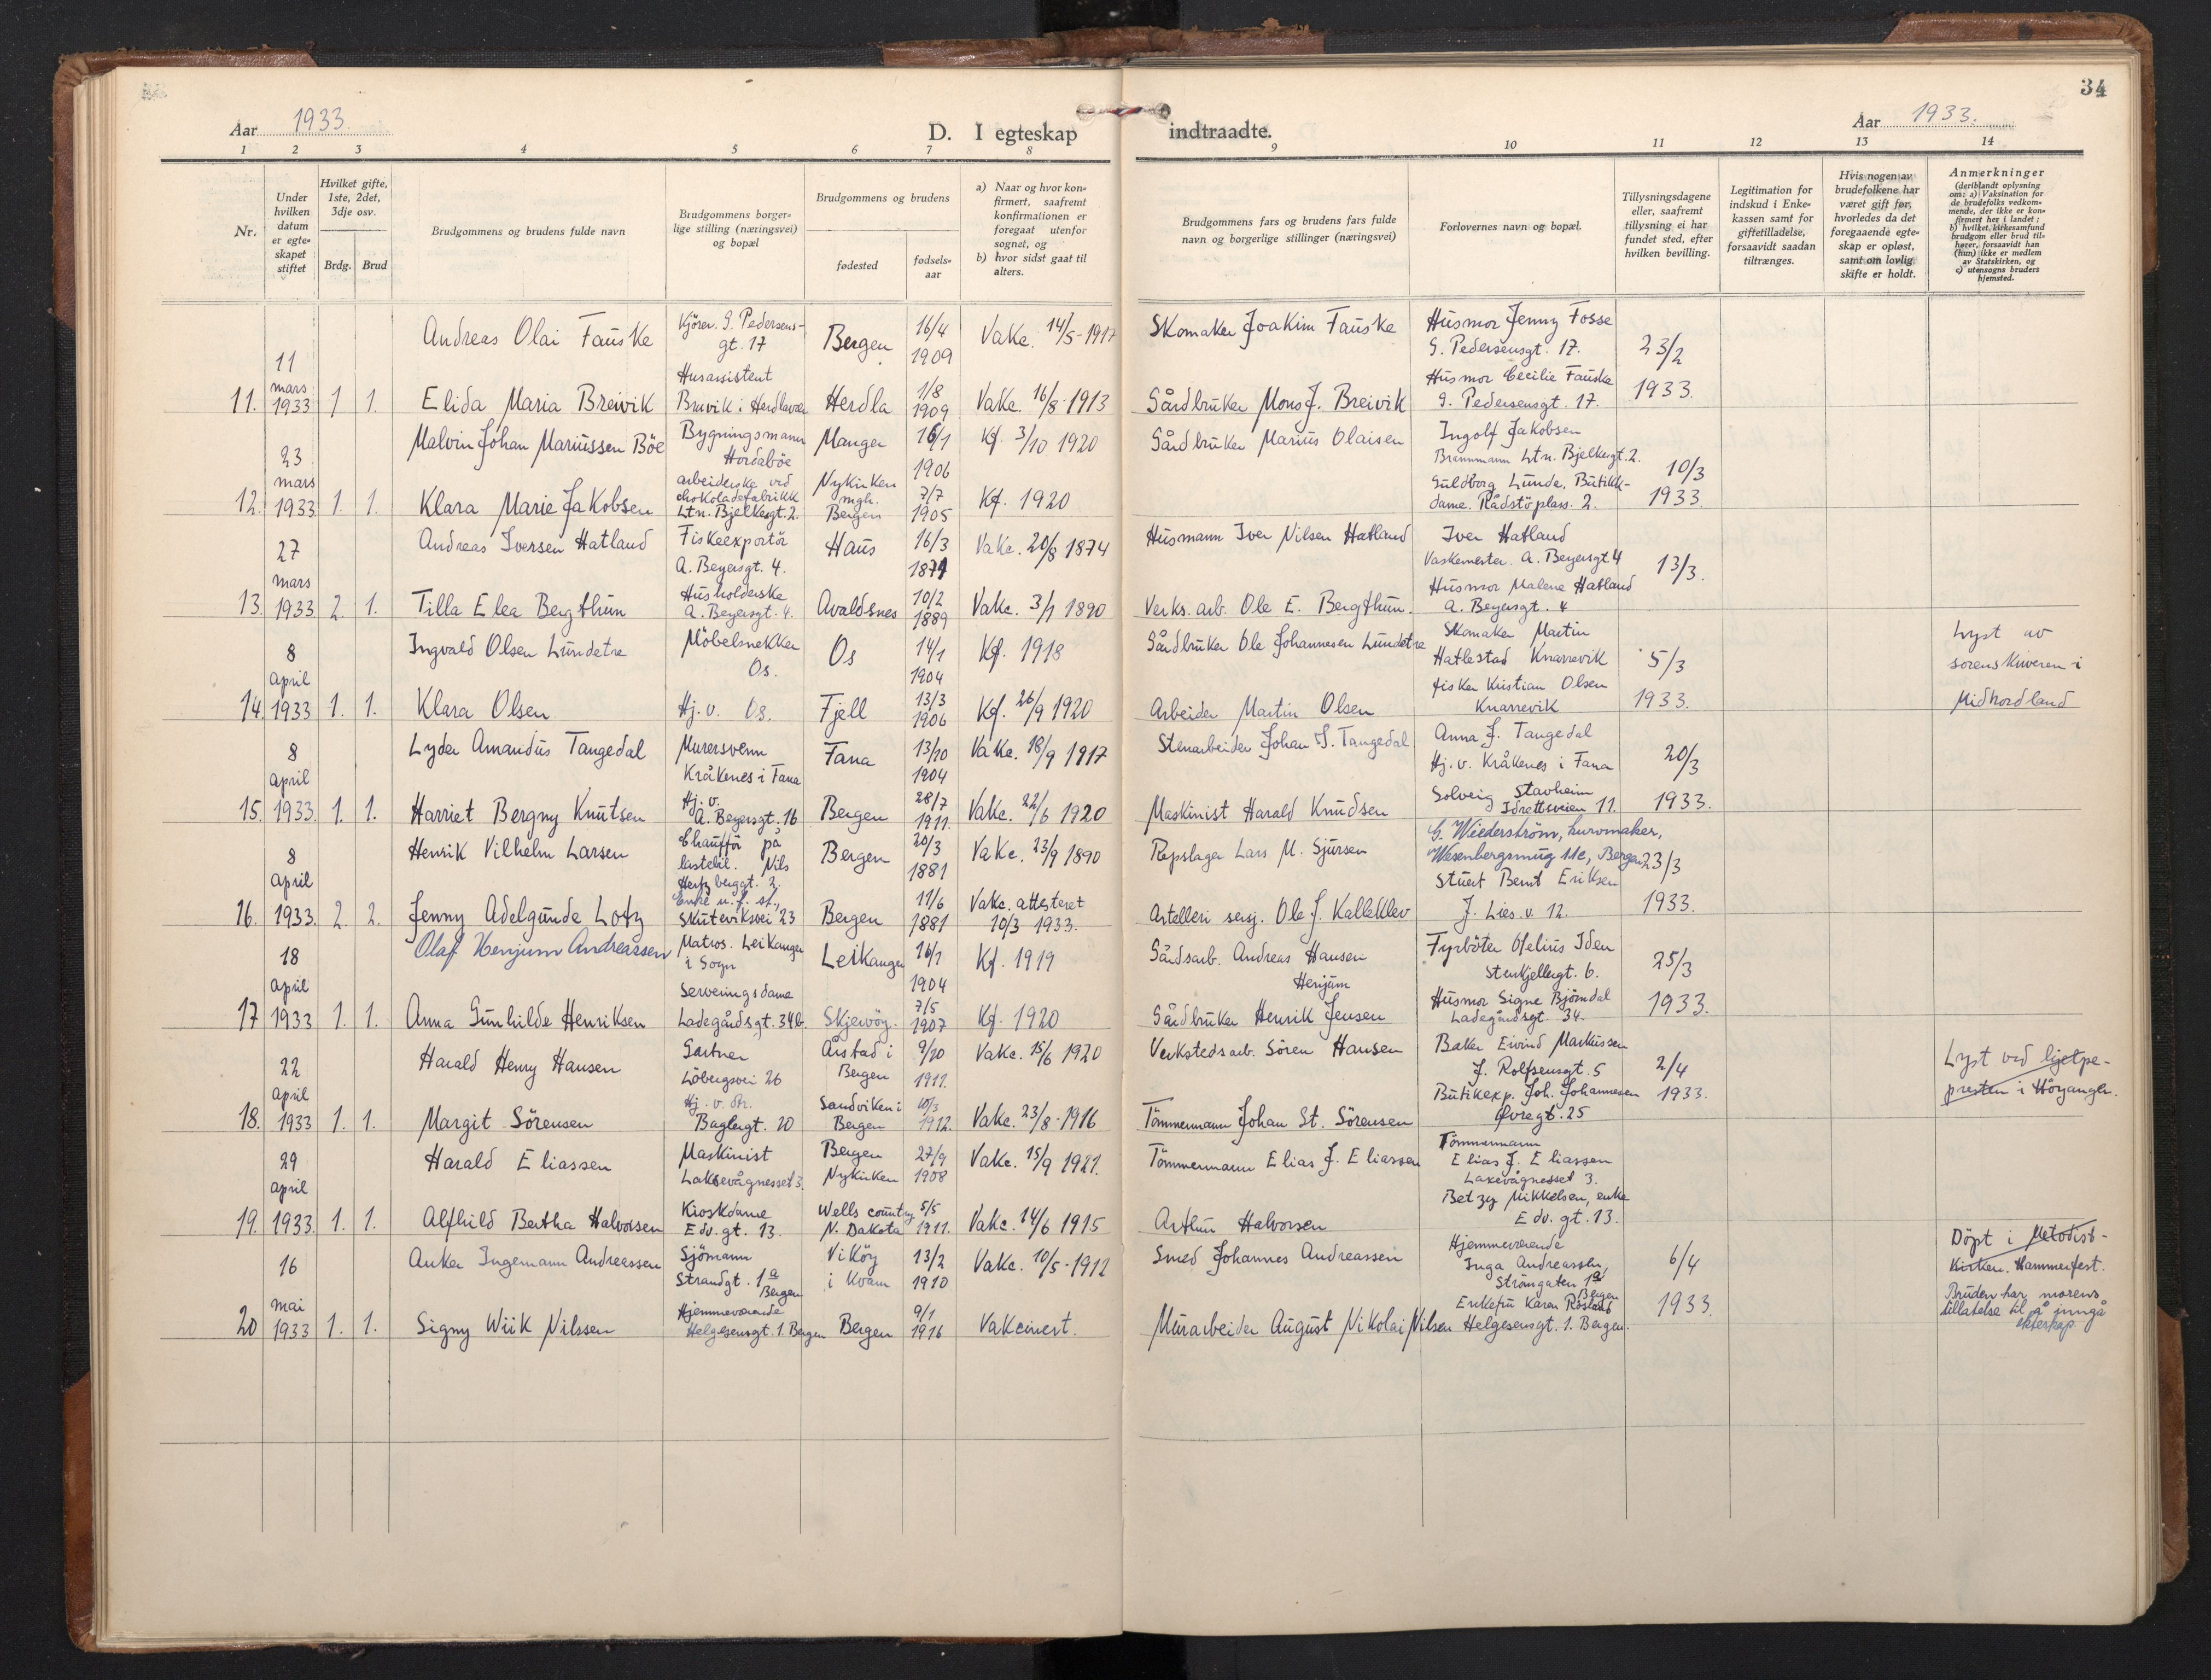 34
Aar 1933.
D. I egteskap indtraadte.
Aar 1933.
1 2 3 4 5 6 7 8 9 10 11 12 13 14
Nr.
Under hvilken datum er egteskapet stiftet
Hvilket gifte, 1ste, 2det, 3dje osv.
Brdg. Brud
Brudgommens og brudens fulde navn
Brudgommens borgerlige stilling (næringsvei) og bopæl
Brudgommens og brudens
fødested
fødselsaar
a) Naar og hvor konfirmert, saafremt konfirmationen er foregaat utenfor sognet, og
b) hvor sidst gaat til alters.
Brudgommens fars og brudens fars fulde navn og borgerlige stillinger (næringsvei)
Forlovernes navn og bopæl.
Tillysningsdagene eller, saafremt tillysning ei har fundet sted, efter hvilken bevilling.
Legitimation for indskud i Enkekassen samt for giftetilladelse, forsaavidt saadan tiltrænges.
Hvis nogen av brudefolkene har været gift før, hvorledes da det foregaaende egteskap er opløst, samt om lovlig skifte er holdt.
Anmerkninger
(deriblandt oplysning om: a) Vaksination for de brudefolks vedkommende, der ikke er konfirmert her i landet; b) hvilket kirkesamfund brudgom eller brud tilhører, forsaavidt han (hun) ikke er medlem av Statskirken, og c) utensogns bruders hjemsted.
11. 11 mars 1933 1 1.
Andreas Olai Fauske
Kjörer. G. Pedersens-
gt. 17
Bergen
16/4 1909
Vakc. 14/5-1917
Skomaker Joakim Fauske
Husmor Jenny Fosse
G. Pedersensgt. 17.
23/2 1933.
Elida Maria Breivik
Husassistent
Breivik i Herdlavær
Herdla
1/8 1909
Vakc. 16/8-1913
Gårdbruker Mons J. Breivik
Husmor Cecilie Fauske
G. Pedersensgt. 17.
12. 23 mars 1933 1. 1.
Malvin Johan Mariussen Böe
Bygningsmann
Hordaböe
Manger
16/1 1906
Kf. 3/10 1920
Gårdbruker Marius Olaisen
Ingolf Jakobsen
Brannmann Ltn. Bjelkesgt. 2.
10/3 1933.
Klara Marie Jakobsen
arbeiderske ved
chokoladefabrikk
Ltn. Bjelkesgt. 2.
Nykirken
mgh.
Bergen
7/7 1905
Kf. 1920
Guldborg Lunde, Butikk-
dame. Rådstöplass. 2.
13. 27 mars 1933 2. 1.
Andreas Iversen Hatland
Fiskeexportör
A. Beyersgt. 4.
Haus
16/3 1871
Vakc. 20/8 1874
Husmann Iver Nilsen Hatland
Iver Hatland
Vaskemester. A. Beyersgt. 4
13/3.
Tilla Elea Bergthun
Husholderske
A. Beyersgt. 4.
Avaldsnes
10/2 1889
Vakc. 3/7 1890
Verks. arb. Ole E. Bergthun.
Husmor Malene Hatland
A. Beyersgt. 4
14. 8 april 1933 1. 1.
Ingvald Olsen Lundetre
Möbelsnekker
Os.
Os
14/1 1904
Kf. 1918
Gårdbruker Ole Johannesen Lundetre
Skomaker Martin
Hatlestad Knarrevik
5/3 1933.
Lyst av
sorenskriveren i
Midhordland
Klara Olsen
Hj. v. Os.
Fjell
13/3 1906
Kf. 26/9 1920
Arbeider Martin Olsen
fisker Kristian Olsen
Knarrevik
15. 8 april 1933. 1. 1.
Lyder Amandus Tangedal
Murersvenn
Kråkenes i Fana
Fana
13/10 1904
Vakc. 18/9 1917
Stenarbeider Johan S. Tangedal
Anna J. Tangedal
Hj. v. Kråkenes i Fana
20/3 1933.
Harriet Bergny Knutsen
Hj. v.
A. Beyersgt. 16
Bergen
28/7 1911.
Vakc. 22/6 1920
Maskinist Harald Knudsen
Solveig Stavheim
Idrettsveien 11.
16. 8 april 1933. 2. 2.
Henrik Vilhelm Larsen
Chaufför på
lastebil. Nils
Hertzberggt. 2.
Bergen
20/3 1881
Vakc. 23/9 1890
Repslager Lars M. Sjursen
G. Wiederström, kurvmaker,
Wesenbergsmug 11c, Bergen
23/3 1933.
Jenny Adelgunde Lotz
Enke u. f. st.,
Skuteviksvei 23
Bergen
11/6 1881
Vakc. attesteret
10/3 1933.
Artelleri serg. Ole J. Kalleklev
Stuert Bernt Eriksen
J. Lies. v. 12.
17 18 april 1933 1. 1.
Olaf Henjum Andreassen
Matros. Leikanger
i Sogn
Leikanger
16/1 1904
Kf. 1919
Gårdsarb. Andreas Hansen
Henjum
Fyrböter Ofelius Iden
Stenkjellergt. 6.
25/3 1933.
Anna Gunhilde Henriksen
Serveringsdame
Ladegårdsgt. 34b.
Skjervöy.
7/5 1907
Kf. 1920
Gårdbruker Henrik Jensen
Husmor Signe Björndal
Ladegårdsgt 34.
18. 22 april 1933 1. 1.
Harald Henry Hansen
Gartner
Löbergsvei 26
Årstad i
Bergen
9/10 1911.
Vakc. 15/6 1920
Verkstedsarb. Sören Hansen
Baker Eivind Markussen
J. Rolfsensgt. 5
2/4 1933.
Lyst ved hjelpe-
presten i Höyanger.
Margit Sörensen
Hj. v. dtr.
Baglergt. 20
Sandviken i
Bergen
10/3 1912.
Vakc. 23/8-1916
Tömmermann Johan St. Sörensen
Butikexp. Joh. Johannesen
Øvregt. 25
19. 29 april 1933. 1. 1.
Harald Eliassen
Maskinist
Laksevågnesset 3.
Bergen
Nykirken
27/9 1908
Vakc. 15/9 1921.
Tömmermann Elias J. Eliassen
Tömmermann
Elias J. Eliassen
Laxevågnesset 3.
Alfhild Bertha Halvorsen
Kioskdame
Edv. gt. 13.
Wells country
N. Dakota
5/5 1911.
Vakc. 14/6 1915
Arthur Halvorsen
Betzy Mikkelsen, enke
Edv. gt. 13.
20 16 mai 1933 1. 1.
Anker Ingemann Andreassen
Sjömann
Strandgt. 1a
Bergen
Viköy
i Kvam
13/2 1910
Vakc. 10/5-1912
Smed Johannes Andreassen
Hjemmeværende
Inga Andreassen,
Strömgaten 1a
Bergen
6/4 1933.
Döpt i Metodist-
Kirken. Hammerfest.
Bruden har morens
tillatelse til å inngå
ekteskap.
Signy Wiik Nilssen
Hjemmeværende
Helgesensgt. 1. Bergen
Bergen
9/1 1916
Vakcinert.
Murarbeider August Nikolai Nilsen
Enkefru Karen
Helgesensgt. 1. Bergen.